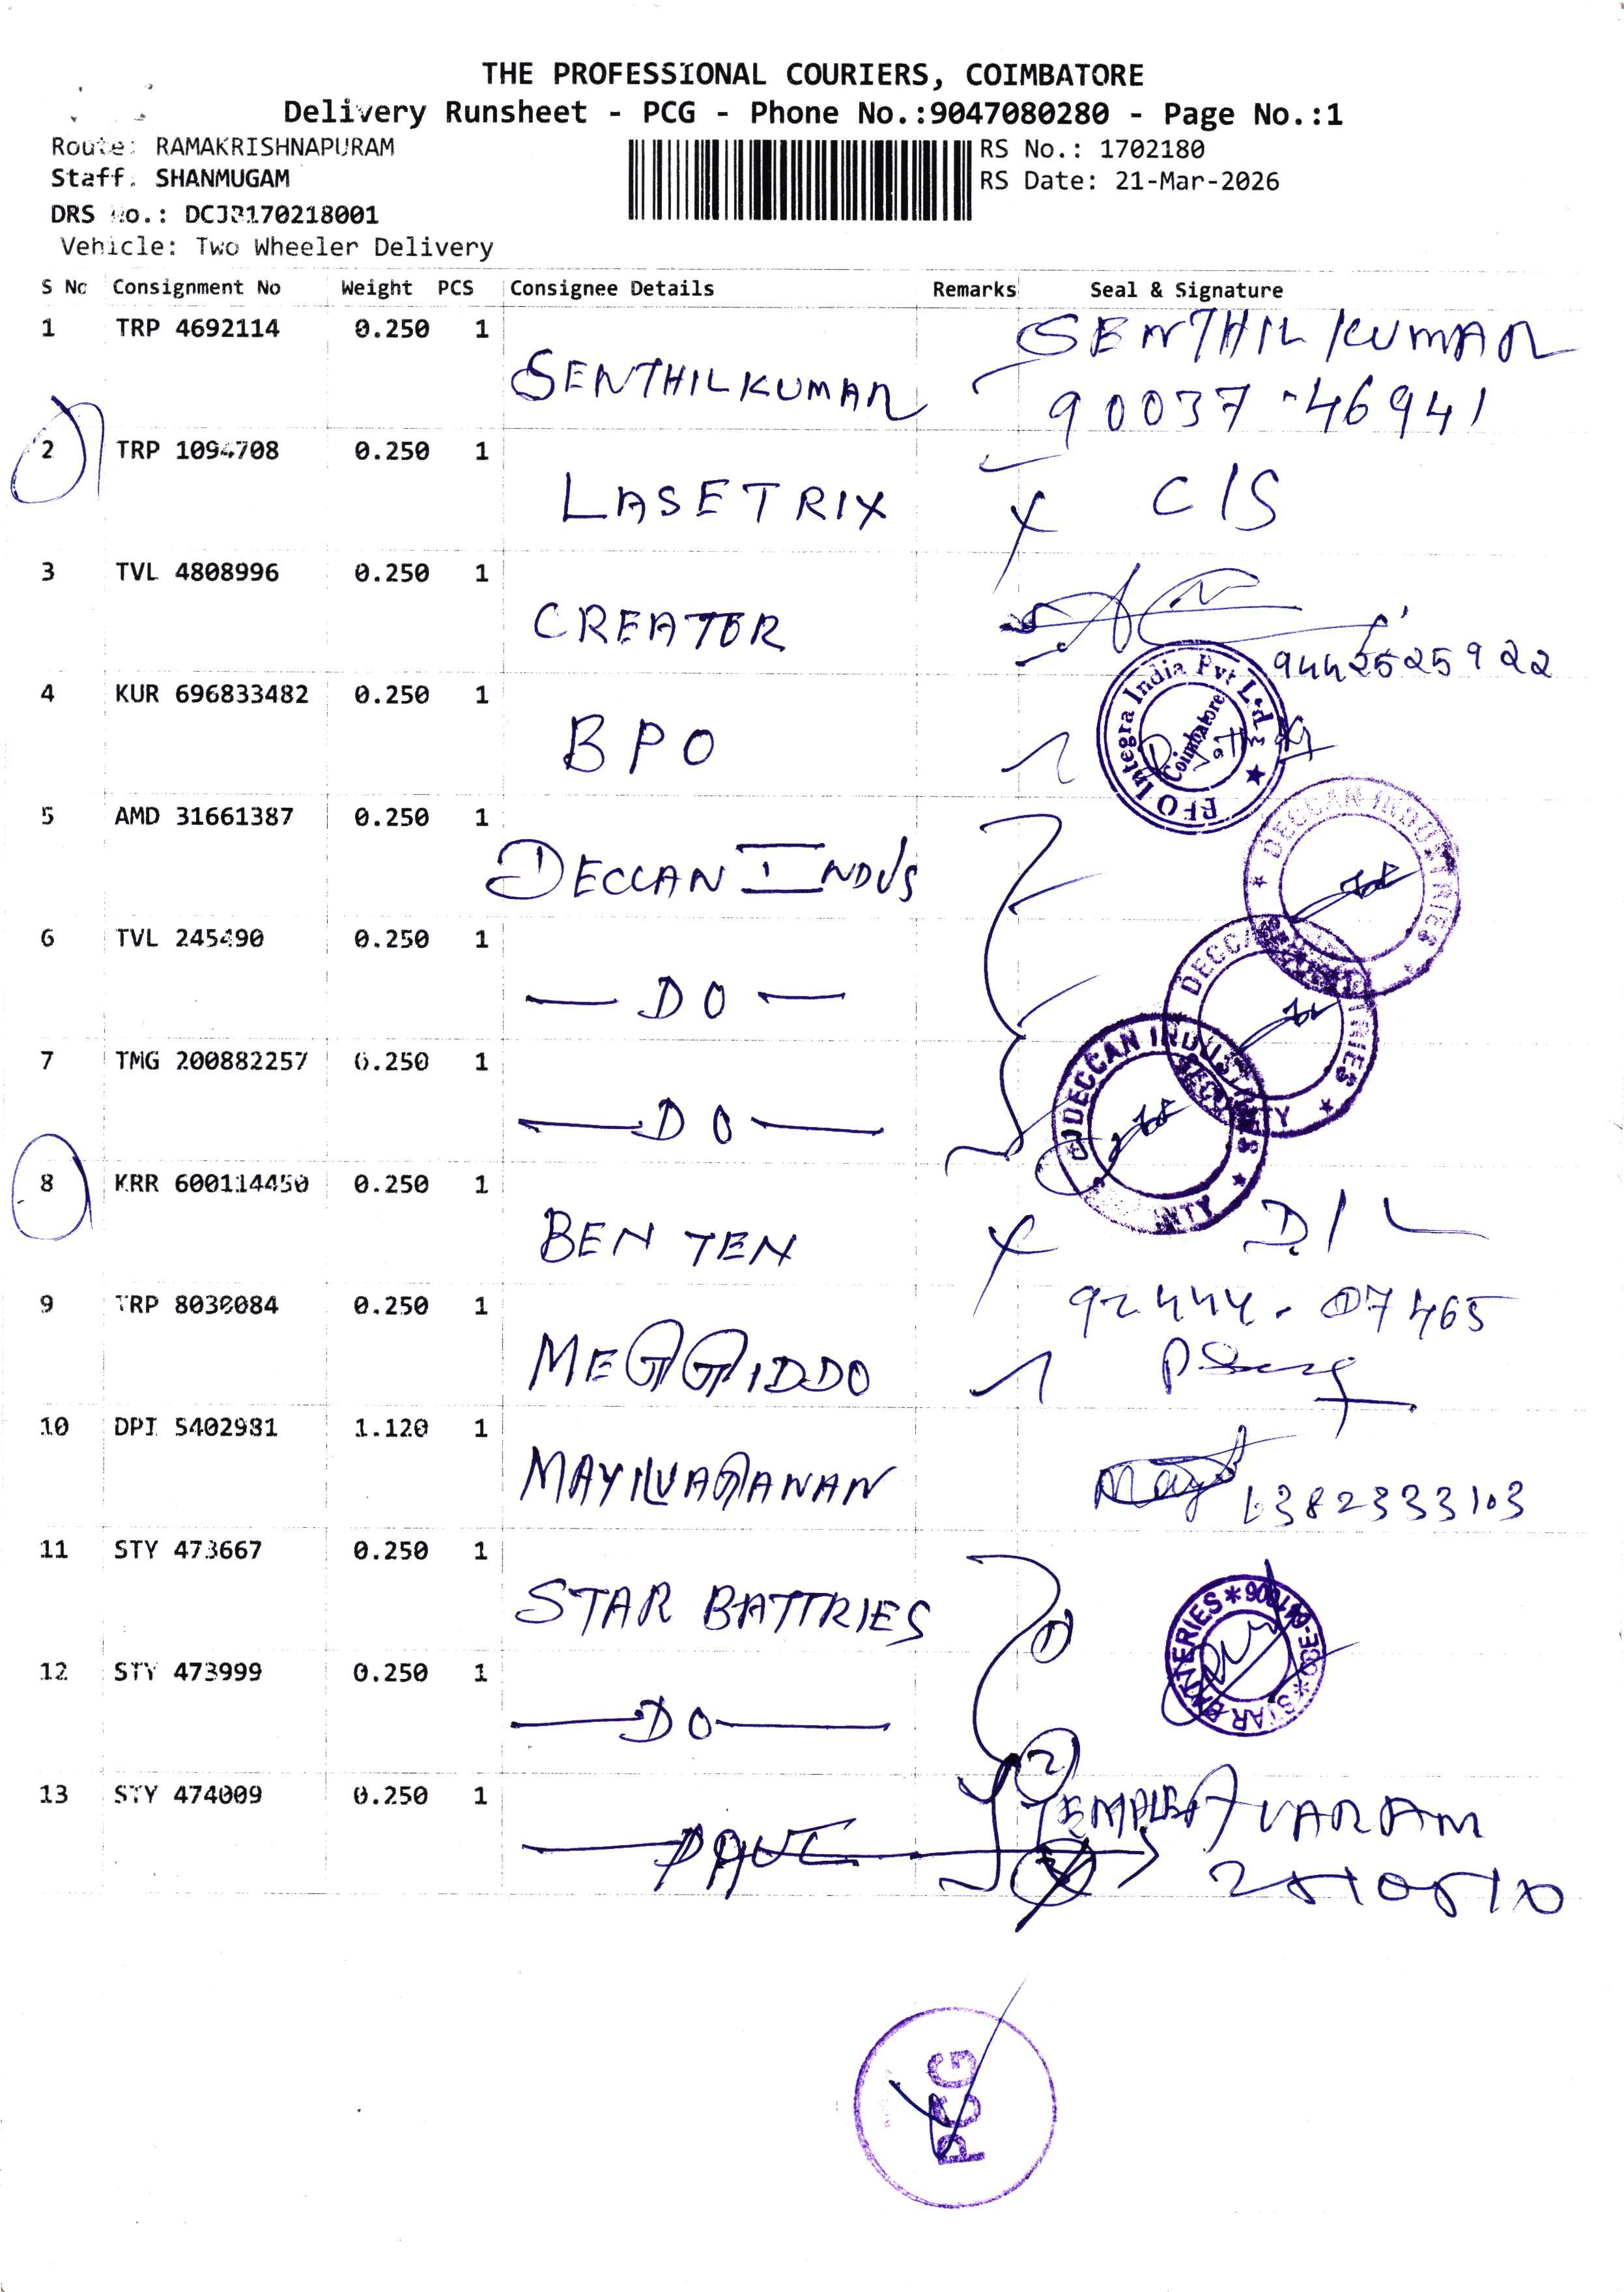 THE PROFESSIONAL COURIERS, COIMBATORE
Delivery Runsheet - PCG - Phone No.:9047080280 - Page No.:1
Route: RAMAKRISHNAPURAM
RS No.: 1702180
Staff: SHANMUGAM
RS Date: 21-Mar-2026
DRS No.:
Vehicle: Two Wheeler Delivery
S No Consignment No Weight PCS Consignee Details Remarks Seal & Signature
1 TRP 4692114 0.250 1 SENTHILKUMAR SENTHIL KUMAR
90037-46941
2 TRP 1094708 0.250 1 LASETRIX C/S
3 TVL 4808996 0.250 1 CREATOR
9442525922
4 KUR 696833482 0.250 1 BPO
Integra India Pvt Ltd
Coimbatore
5 AMD 31661387 0.250 1 DECCAN INDUS
DECCAN INDUSTRIES
6 TVL 245490 0.250 1 — DO —
DECCAN INDUSTRIES SECURITY
7 TMG 200882257 0.250 1 — DO —
DECCAN INDUSTRIES
8 KRR 600114450 0.250 1 BEN TEN D/L
9 TRP 8030084 0.250 1 MEGGIDDO
92444-07465
10 DPI 5402981 1.120 1 MAYILVAGANAN
6382333103
11 STY 473667 0.250 1 STAR BATTRIES
1
STAR BATTERIES * CBE-641006 *
12 STY 473999 0.250 1 — DO —
2
13 STY 474009 0.250 1 TEMPLE AVARAM
PCG